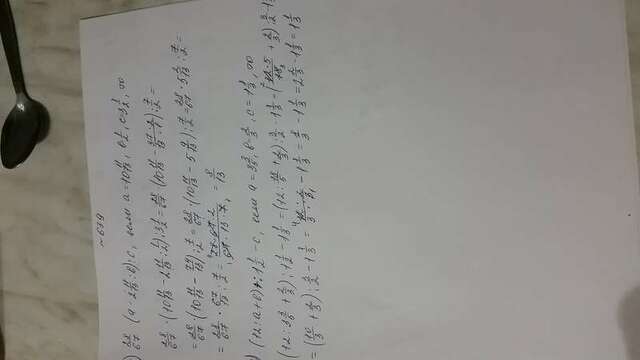 ~ 639
) 28/67 (a - 2 11/13 : b) : c, если a = 10 11/13, b 1/2, c = 3 1/2, то
28/67 · (10 11/13 - 2 11/13 : 1/2) : 3 1/2 = 28/67 · (10 11/13 - 37/13 · 2/1) : 7/2 =
= 28/67 · (10 11/13 - 74/13) : 7/2 = 28/67 · (10 11/13 - 5 9/13) : 7/2 = 28/67 · 5 2/13 : 7/2 =
= 28/67 · 67/13 : 7/2 = 28·67·2/67·13·7 = 8/13
) (12 : a + b) : 1 1/2 - c, если a = 3 3/5, b = 2/3, c = 1 1/3, то
(12 : 3 3/5 + 2/3) : 1 1/2 - 1 1/3 = (12 : 18/5 + 2/3) : 3/2 - 1 1/3 = (12·5/18 + 2/3) : 3/2 - 1
= (10/3 + 2/3) : 3/2 - 1 1/3 = 12/3 · 2/3 - 1 1/3 = 8/3 - 1 1/3 = 2 2/3 - 1 1/3 = 1 1/3